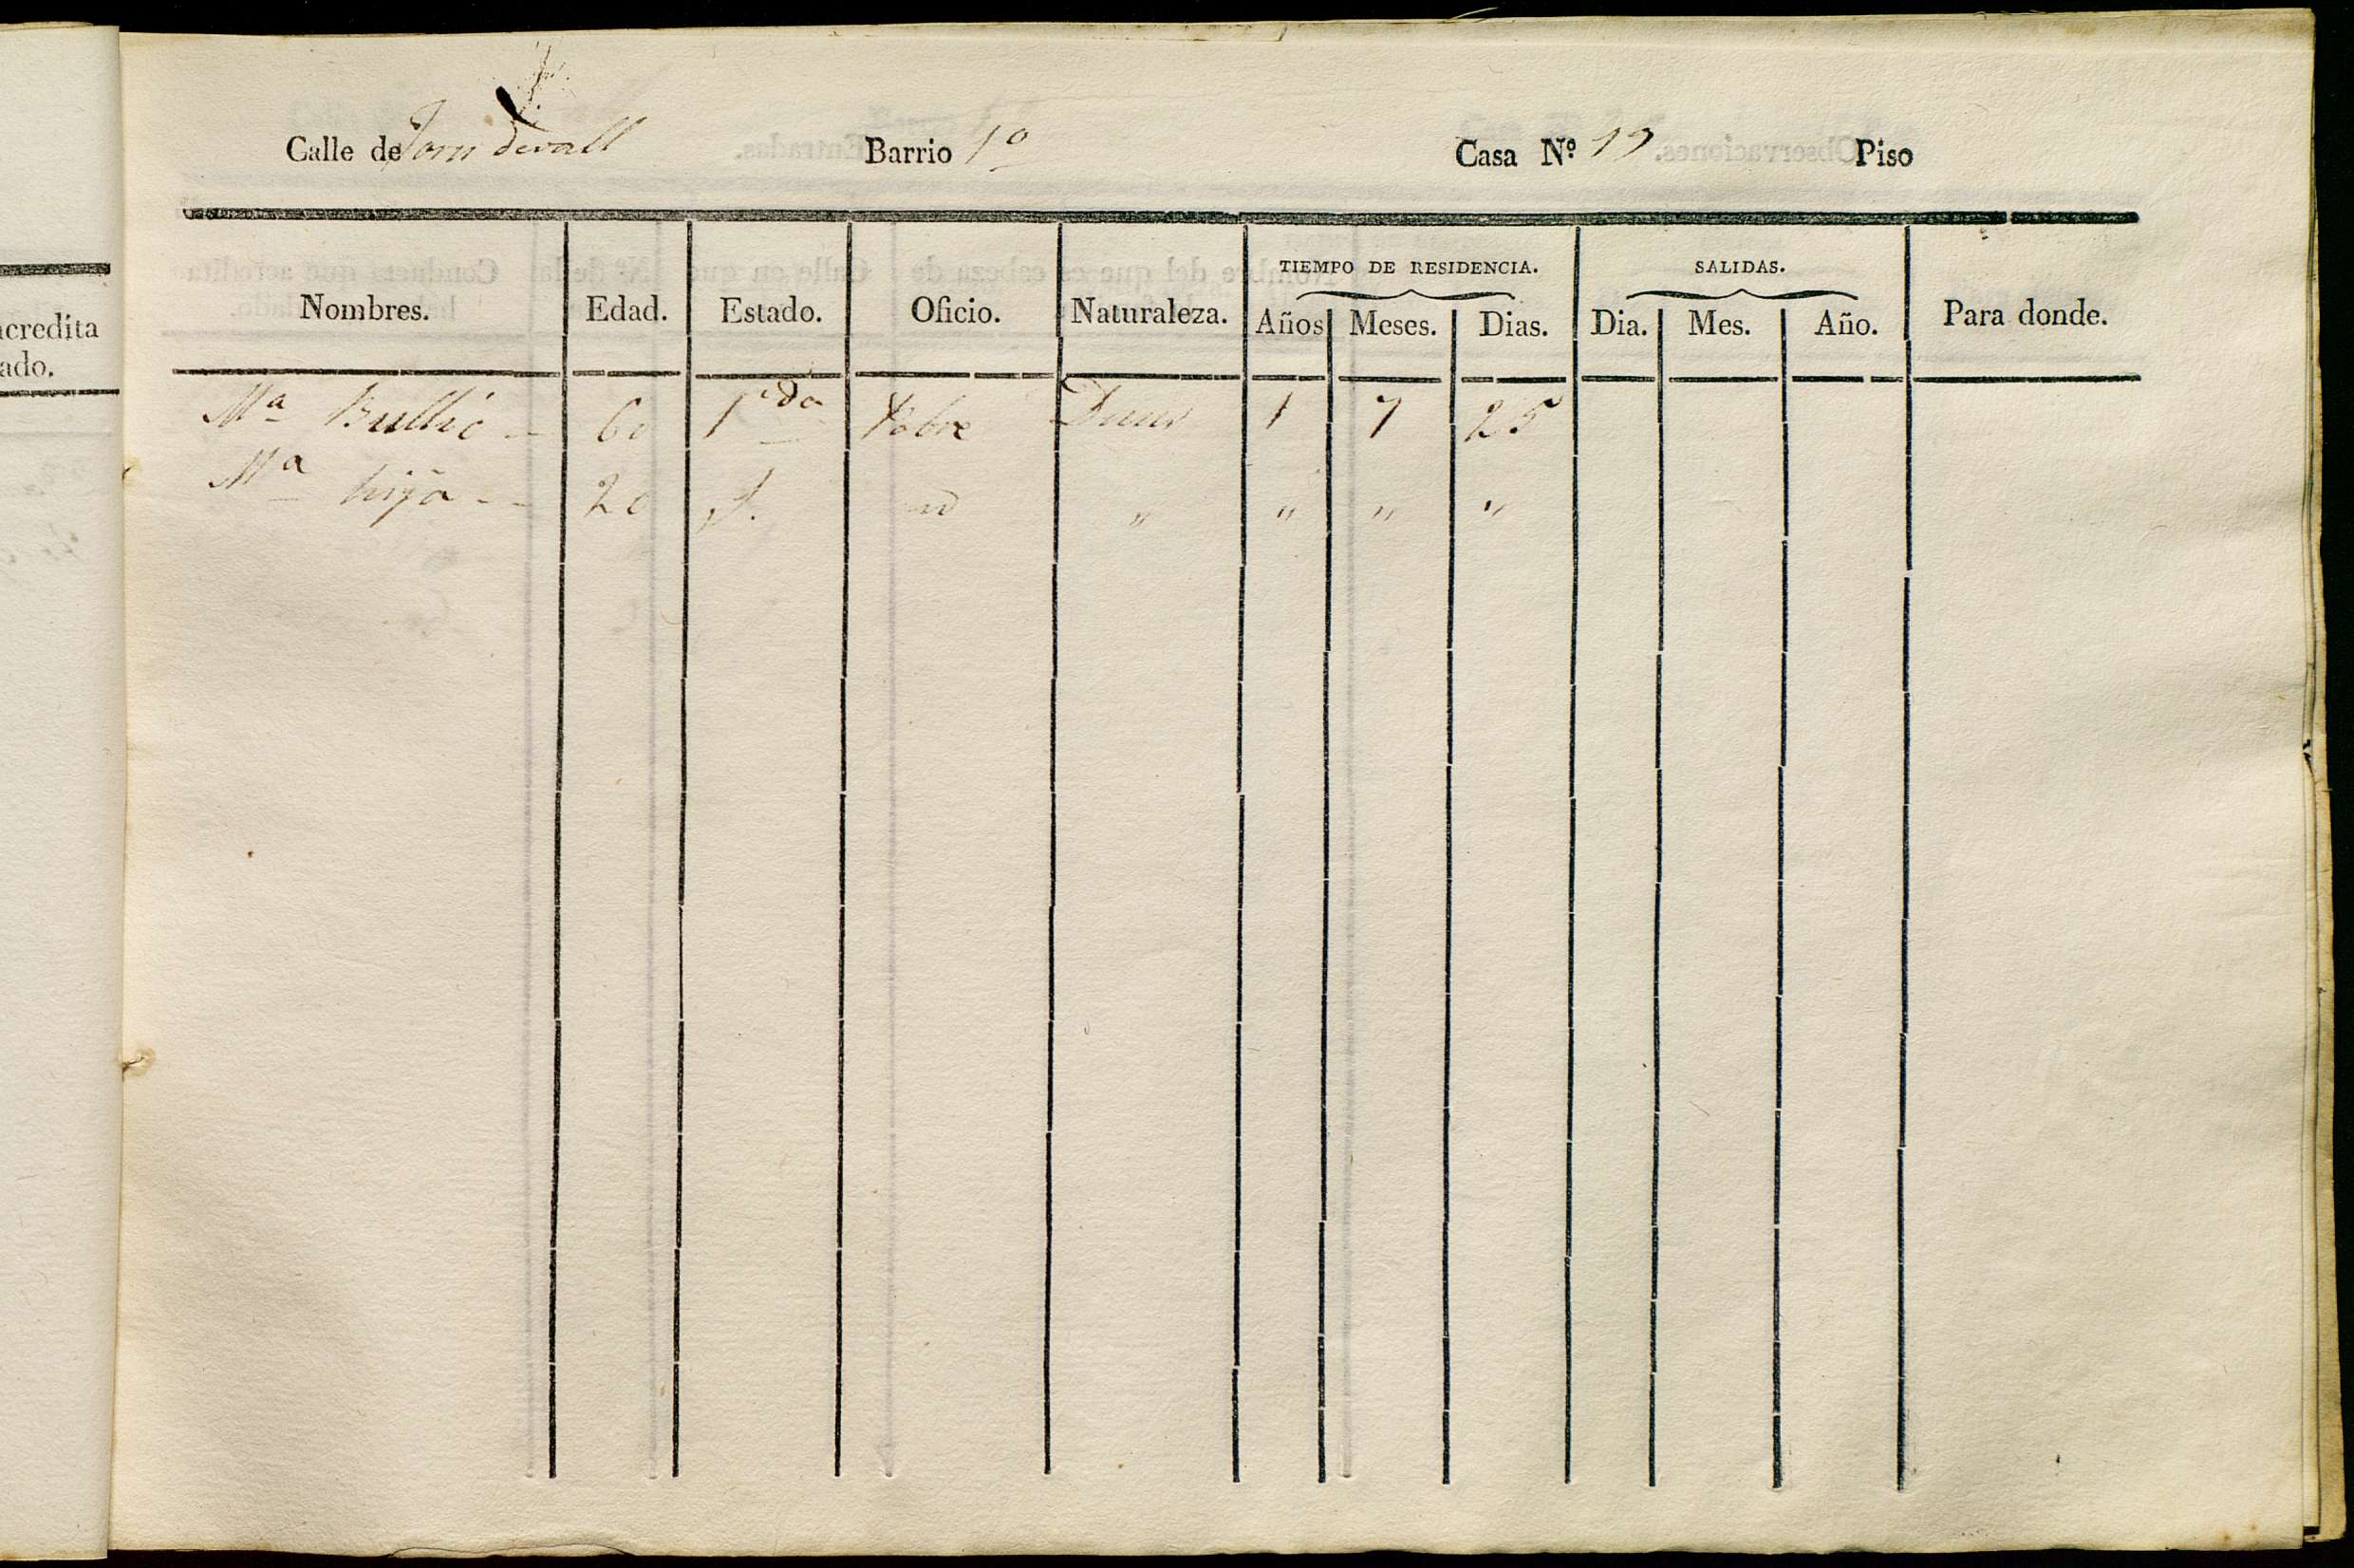 Calle de Barrio 1º Casa Nº 19 Piso
TIEMPO DE RESIDENCIA. SALIDAS.
Nombres. Edad. Estado. Oficio. Naturaleza. Años Meses. Dias. Dia. Mes. Año. Para donde.
Mª 60 Pobre 1 7 25
Mª hija - - 20 S. id " " " "
acredita
ado.
Entradas.
Observaciones.